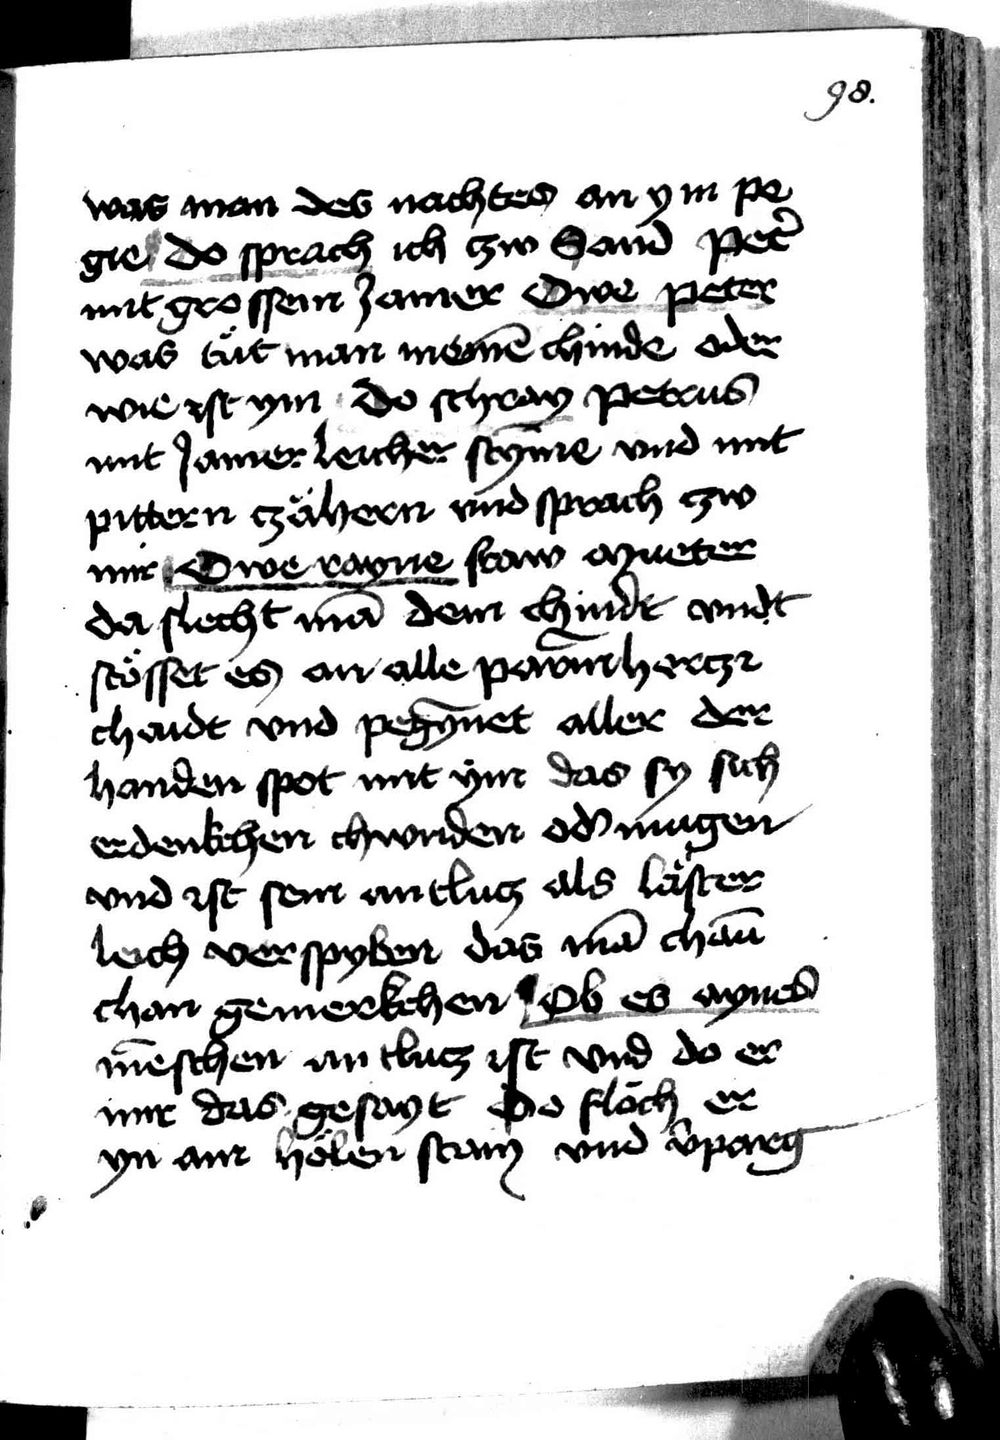 98.
was man des nachtes an ym pe
gie Do sprach ich czw Sand Pet̉
mit grossem Jamer Owe peter
was tuͤt man meinē chinde oder
wie ist ym Do schray Petrus
mit Jamerleicher stȳme vnd mit
pittern czähern vnd sprach czw
mir Owe rayne fraw mueter
da slecht mā dem chindt vndt
stösset es an alle parmhertzi
chaidt vnd pegȳnet aller der
handen spot mit ym das sy sich
erdenkchen chunden od̉ mugen
vnd ist sein antlucz als läster
leich verspyben das mā chaū
chan gemerkchen Ob es aynes
mēschen antlucz ist vnd do er
mir das gesayt Do floch er
yn ain hölen stain vnd v̉parg